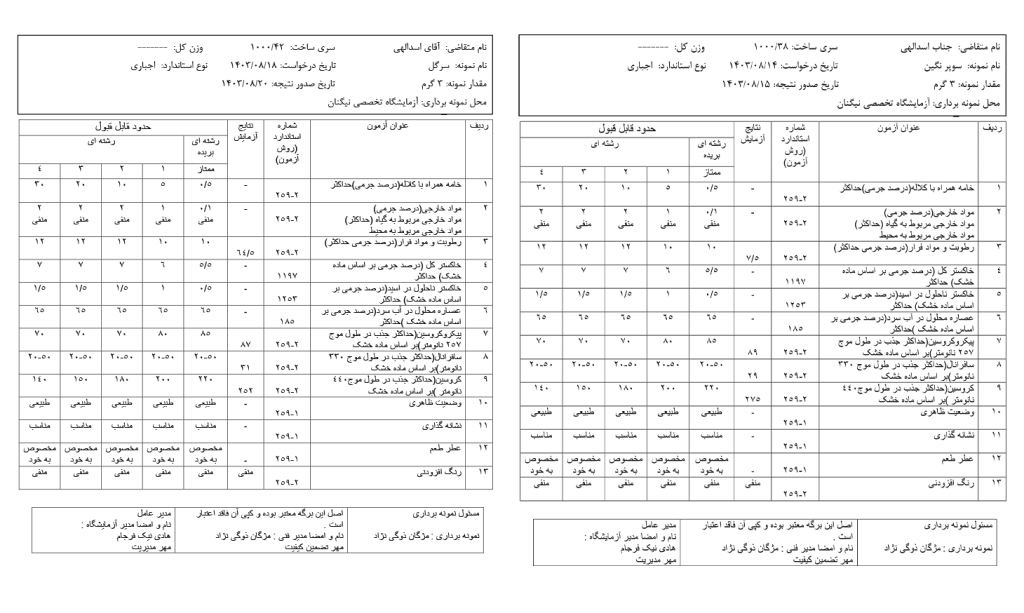 نام متقاضی: آقای اسدالهی سری ساخت: ۱۰۰۰/۴۲ وزن کل: -------
نام نمونه: سرگل تاریخ درخواست: ۱۴۰۳/۰۸/۱۸ نوع استاندارد: اجباری
مقدار نمونه: ۳ گرم تاریخ صدور نتیجه: ۱۴۰۳/۰۸/۲۰
محل نمونه برداری: آزمایشگاه تخصصی نیگتان
ردیف عنوان آزمون شماره استاندارد (روش آزمون) نتایج آزمایش حدود قابل قبول
رشته ای بریده رشته ای
ممتاز ۱ ۲ ۳ ٤
۱ خامه همراه با کلاله(درصد جرمی)حداکثر ۲-۲۵۹ - ۰/۵ ۵ ۱۰ ۲۰ ۳۰
۲ مواد خارجی(درصد جرمی) ۲-۲۵۹ - ۰/۱ ۱ ۲ ۲ ۲
مواد خارجی مربوط به گیاه (حداکثر) منفی منفی منفی منفی منفی
مواد خارجی مربوط به محیط
۳ رطوبت و مواد فرار(درصد جرمی حداکثر) ۲-۲۵۹ ٦٤/٥ ۱۰ ۱۰ ۱۲ ۱۲ ۱۲
٤ خاکستر کل (درصد جرمی بر اساس ماده خشک) حداکثر ۱۱۹۷ - ٥/٥ ٦ ۷ ۷ ۷
٥ خاکستر ناحلول در اسید(درصد جرمی بر اساس ماده خشک) حداکثر ۱۲٥۳ - ۰/٥ ۱ ۱/٥ ۱/٥ ۱/٥
٦ عصاره محلول در آب سرد(درصد جرمی بر اساس ماده خشک )حداکثر ۱۸٥ - ٦٥ ٦٥ ٦٥ ٦٥ ٦٥
۷ پیکروکروسین(حداکثر جذب در طول موج ۲٥۷ نانومتر)بر اساس ماده خشک ۲-۲٥۹ ۸۷ ۸٥ ۸۰ ۷۰ ۷۰ ۷۰
۸ سافرانال(حداکثر جذب در طول موج ۳۳۰ نانومتر)بر اساس ماده خشک ۲-۲٥۹ ۳۱ ۲۰-٥۰ ۲۰-٥۰ ۲۰-٥۰ ۲۰-٥۰ ۲۰-٥۰
۹ کروسین(حداکثر جذب در طول موج ٤٤۰ نانومتر )بر اساس ماده خشک ۲-۲٥۹ ۲٥۲ ۲۲۰ ۲۰۰ ۱۸۰ ۱٥۰ ۱٤۰
۱۰ وضعیت ظاهری ۱-۲٥۹ - طبیعی طبیعی طبیعی طبیعی طبیعی
۱۱ نشانه گذاری ۱-۲٥۹ - مناسب مناسب مناسب مناسب مناسب
۱۲ عطر طعم ۱-۲٥۹ - مخصوص به خود مخصوص به خود مخصوص به خود مخصوص به خود مخصوص به خود
۱۳ رنگ افزودنی ۲-۲٥۹ منفی منفی منفی منفی منفی منفی
مسئول نمونه برداری
نمونه برداری : مژگان ذوگی نژاد
اصل این برگه معتبر بوده و کپی آن فاقد اعتبار
است .
نام و امضا مدیر فنی : مژگان ذوگی نژاد
مهر تضمین کیفیت
مدیر عامل
نام و امضا مدیر آزمایشگاه :
هادی نیک فرجام
مهر مدیریت
نام متقاضی: جناب اسدالهی سری ساخت: ۱۰۰۰/۳۸ وزن کل: -------
نام نمونه: سوپر نگین تاریخ درخواست: ۱۴۰۳/۰۸/۱۴ نوع استاندارد: اجباری
مقدار نمونه: ۳ گرم تاریخ صدور نتیجه: ۱۴۰۳/۰۸/۱۵
محل نمونه برداری: آزمایشگاه تخصصی نیگتان
ردیف عنوان آزمون شماره استاندارد (روش آزمون) نتایج آزمایش حدود قابل قبول
رشته ای بریده رشته ای
ممتاز ۱ ۲ ۳ ٤
۱ خامه همراه با کلاله(درصد جرمی)حداکثر ۲-۲٥۹ - ۰/٥ ٥ ۱۰ ۲۰ ۳۰
۲ مواد خارجی(درصد جرمی) ۲-۲٥۹ - ۰/۱ ۱ ۲ ۲ ۲
مواد خارجی مربوط به گیاه (حداکثر) منفی منفی منفی منفی منفی
مواد خارجی مربوط به محیط
۳ رطوبت و مواد فرار(درصد جرمی حداکثر) ۲-۲٥۹ ۷/٥ ۱۰ ۱۰ ۱۲ ۱۲ ۱۲
٤ خاکستر کل (درصد جرمی بر اساس ماده خشک) حداکثر ۱۱۹۷ - ٥/٥ ٦ ۷ ۷ ۷
٥ خاکستر ناحلول در اسید(درصد جرمی بر اساس ماده خشک) حداکثر ۱۲٥۳ - ۰/٥ ۱ ۱/٥ ۱/٥ ۱/٥
٦ عصاره محلول در آب سرد(درصد جرمی بر اساس ماده خشک )حداکثر ۱۸٥ - ٦٥ ٦٥ ٦٥ ٦٥ ٦٥
۷ پیکروکروسین(حداکثر جذب در طول موج ۲٥۷ نانومتر)بر اساس ماده خشک ۲-۲٥۹ ۸۹ ۸٥ ۸۰ ۷۰ ۷۰ ۷۰
۸ سافرانال(حداکثر جذب در طول موج ۳۳۰ نانومتر)بر اساس ماده خشک ۲-۲٥۹ ۲۹ ۲۰-٥۰ ۲۰-٥۰ ۲۰-٥۰ ۲۰-٥۰ ۲۰-٥۰
۹ کروسین(حداکثر جذب در طول موج ٤٤۰ نانومتر )بر اساس ماده خشک ۲-۲٥۹ ۲۷٥ ۲۲۰ ۲۰۰ ۱۸۰ ۱٥۰ ۱٤۰
۱۰ وضعیت ظاهری ۱-۲٥۹ - طبیعی طبیعی طبیعی طبیعی طبیعی
۱۱ نشانه گذاری ۱-۲٥۹ - مناسب مناسب مناسب مناسب مناسب
۱۲ عطر طعم ۱-۲٥۹ - مخصوص به خود مخصوص به خود مخصوص به خود مخصوص به خود مخصوص به خود
۱۳ رنگ افزودنی ۲-۲٥۹ منفی منفی منفی منفی منفی منفی
مسئول نمونه برداری
نمونه برداری : مژگان ذوگی نژاد
اصل این برگه معتبر بوده و کپی آن فاقد اعتبار
است .
نام و امضا مدیر فنی : مژگان ذوگی نژاد
مهر تضمین کیفیت
مدیر عامل
نام و امضا مدیر آزمایشگاه :
هادی نیک فرجام
مهر مدیریت